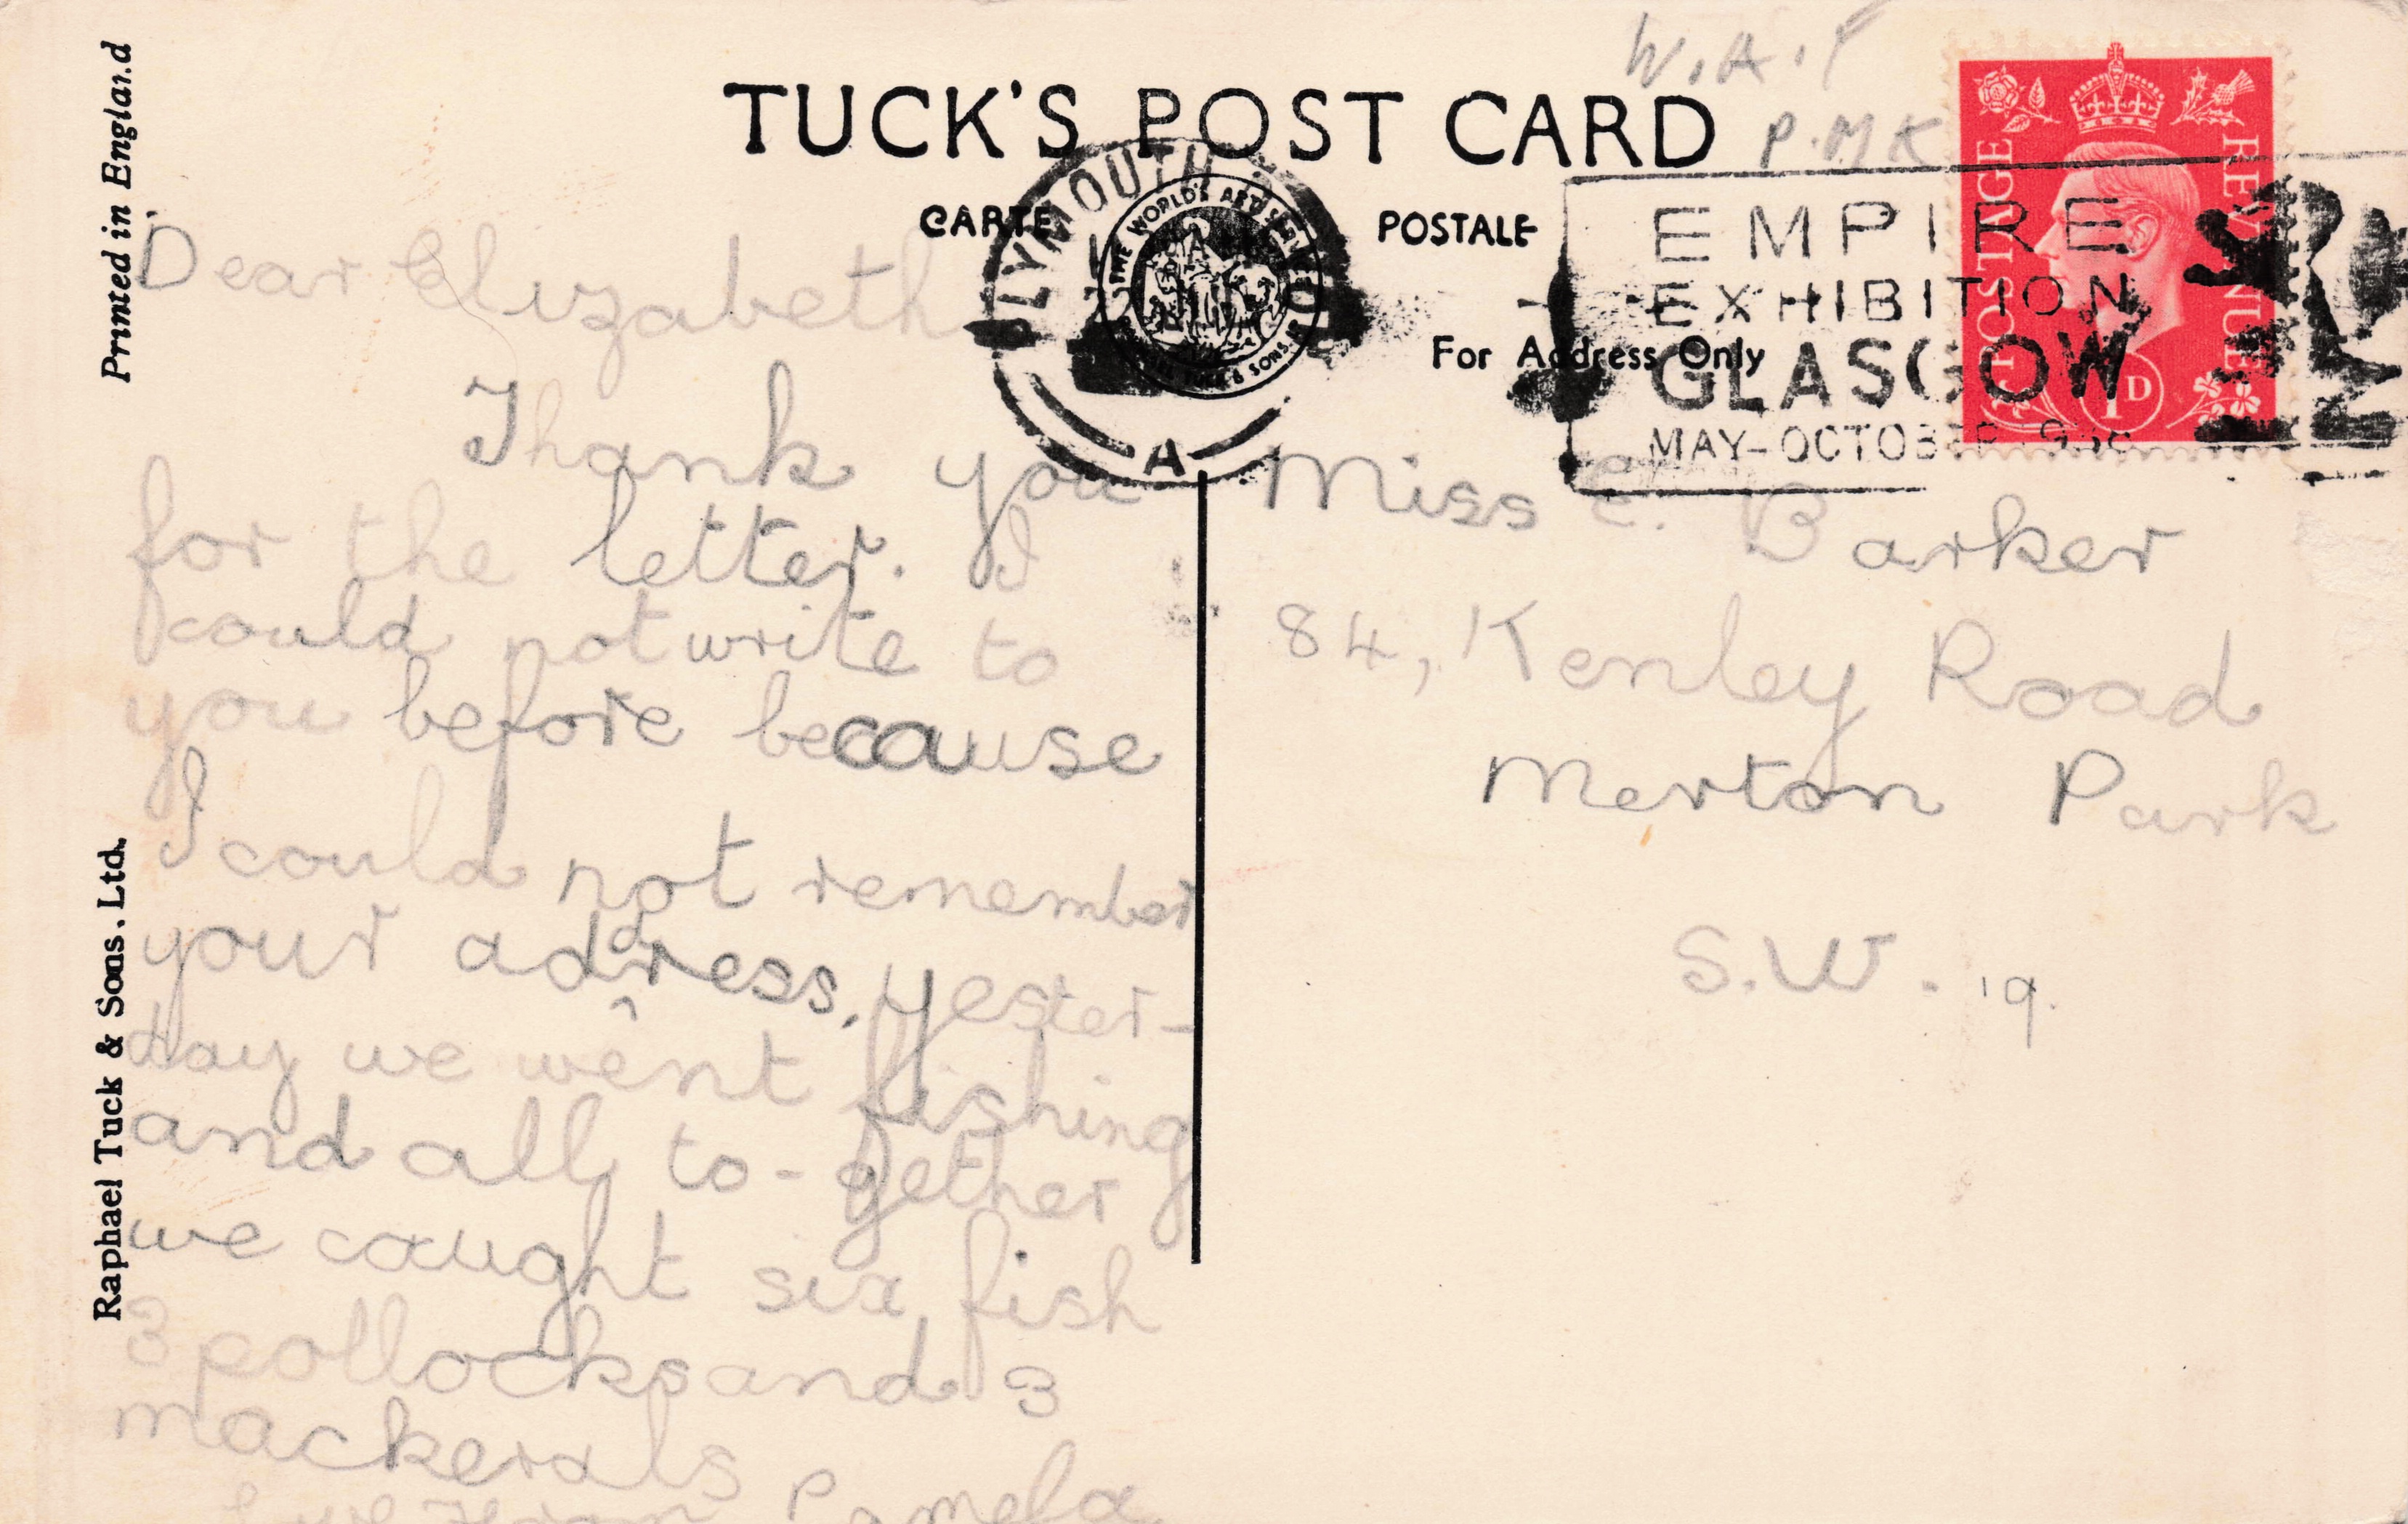 Printed in England
Raphael Tuck & Sons. Ltd.
TUCK'S POST CARD
CARTE POSTALE
For Address Only
W.A.
P.M.K
PLYMOUTH
A
THE WORLD'S ART SERVICE
TUCK & SONS
EMPIRE
EXHIBITION
GLASGOW
MAY-OCTOBER
POSTAGE
REVENUE
1D
Dear Elizabeth
Thank you
for the letter. I
could not write to
you before because
I could not remember
your address. yester-
day we went fishing
and all to-gether
we caught six fish
3 pollocks and 3
mackerals
love from Pamela
Miss E. Barker
84, Kenley Road
Merton Park
S.W. 19.